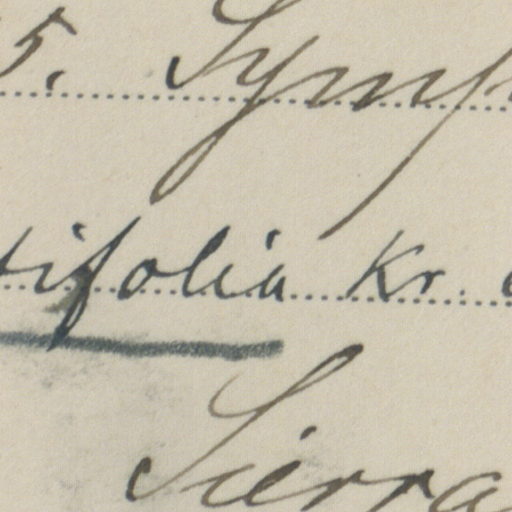 5. Symp
tifolia Kr.
Sierra